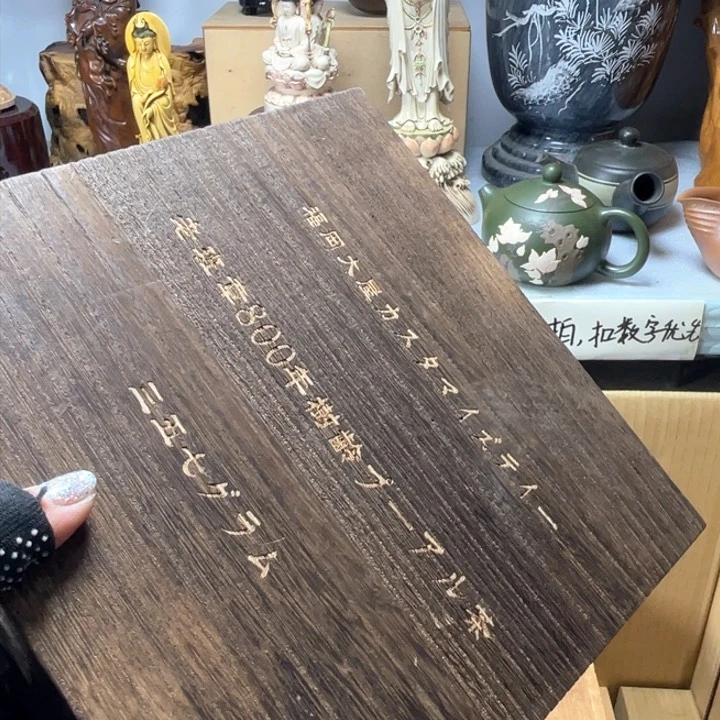 福岡大屋カスタマイズティー
老班章800年樹齢プーアル茶
三五七グラム
拍,扣数字优先